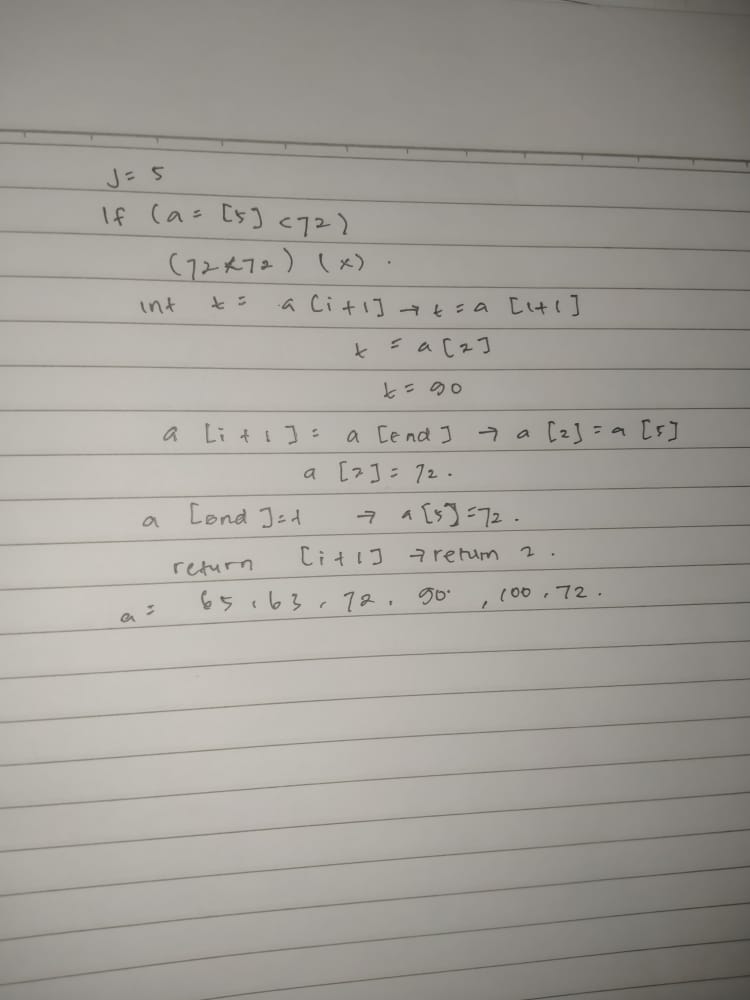 J = 5
If (a = [5] < 72)
(72 < 72) (x).
int t = a [i + 1] → t = a [1+1]
t = a [2]
t = 90
a [i + 1] = a [end] → a [2] = a [5]
a [2] = 72.
a [end] = t → a [5] = 72.
return [i + 1] → return 2.
a = 65, 63, 72, 90, 100, 72.